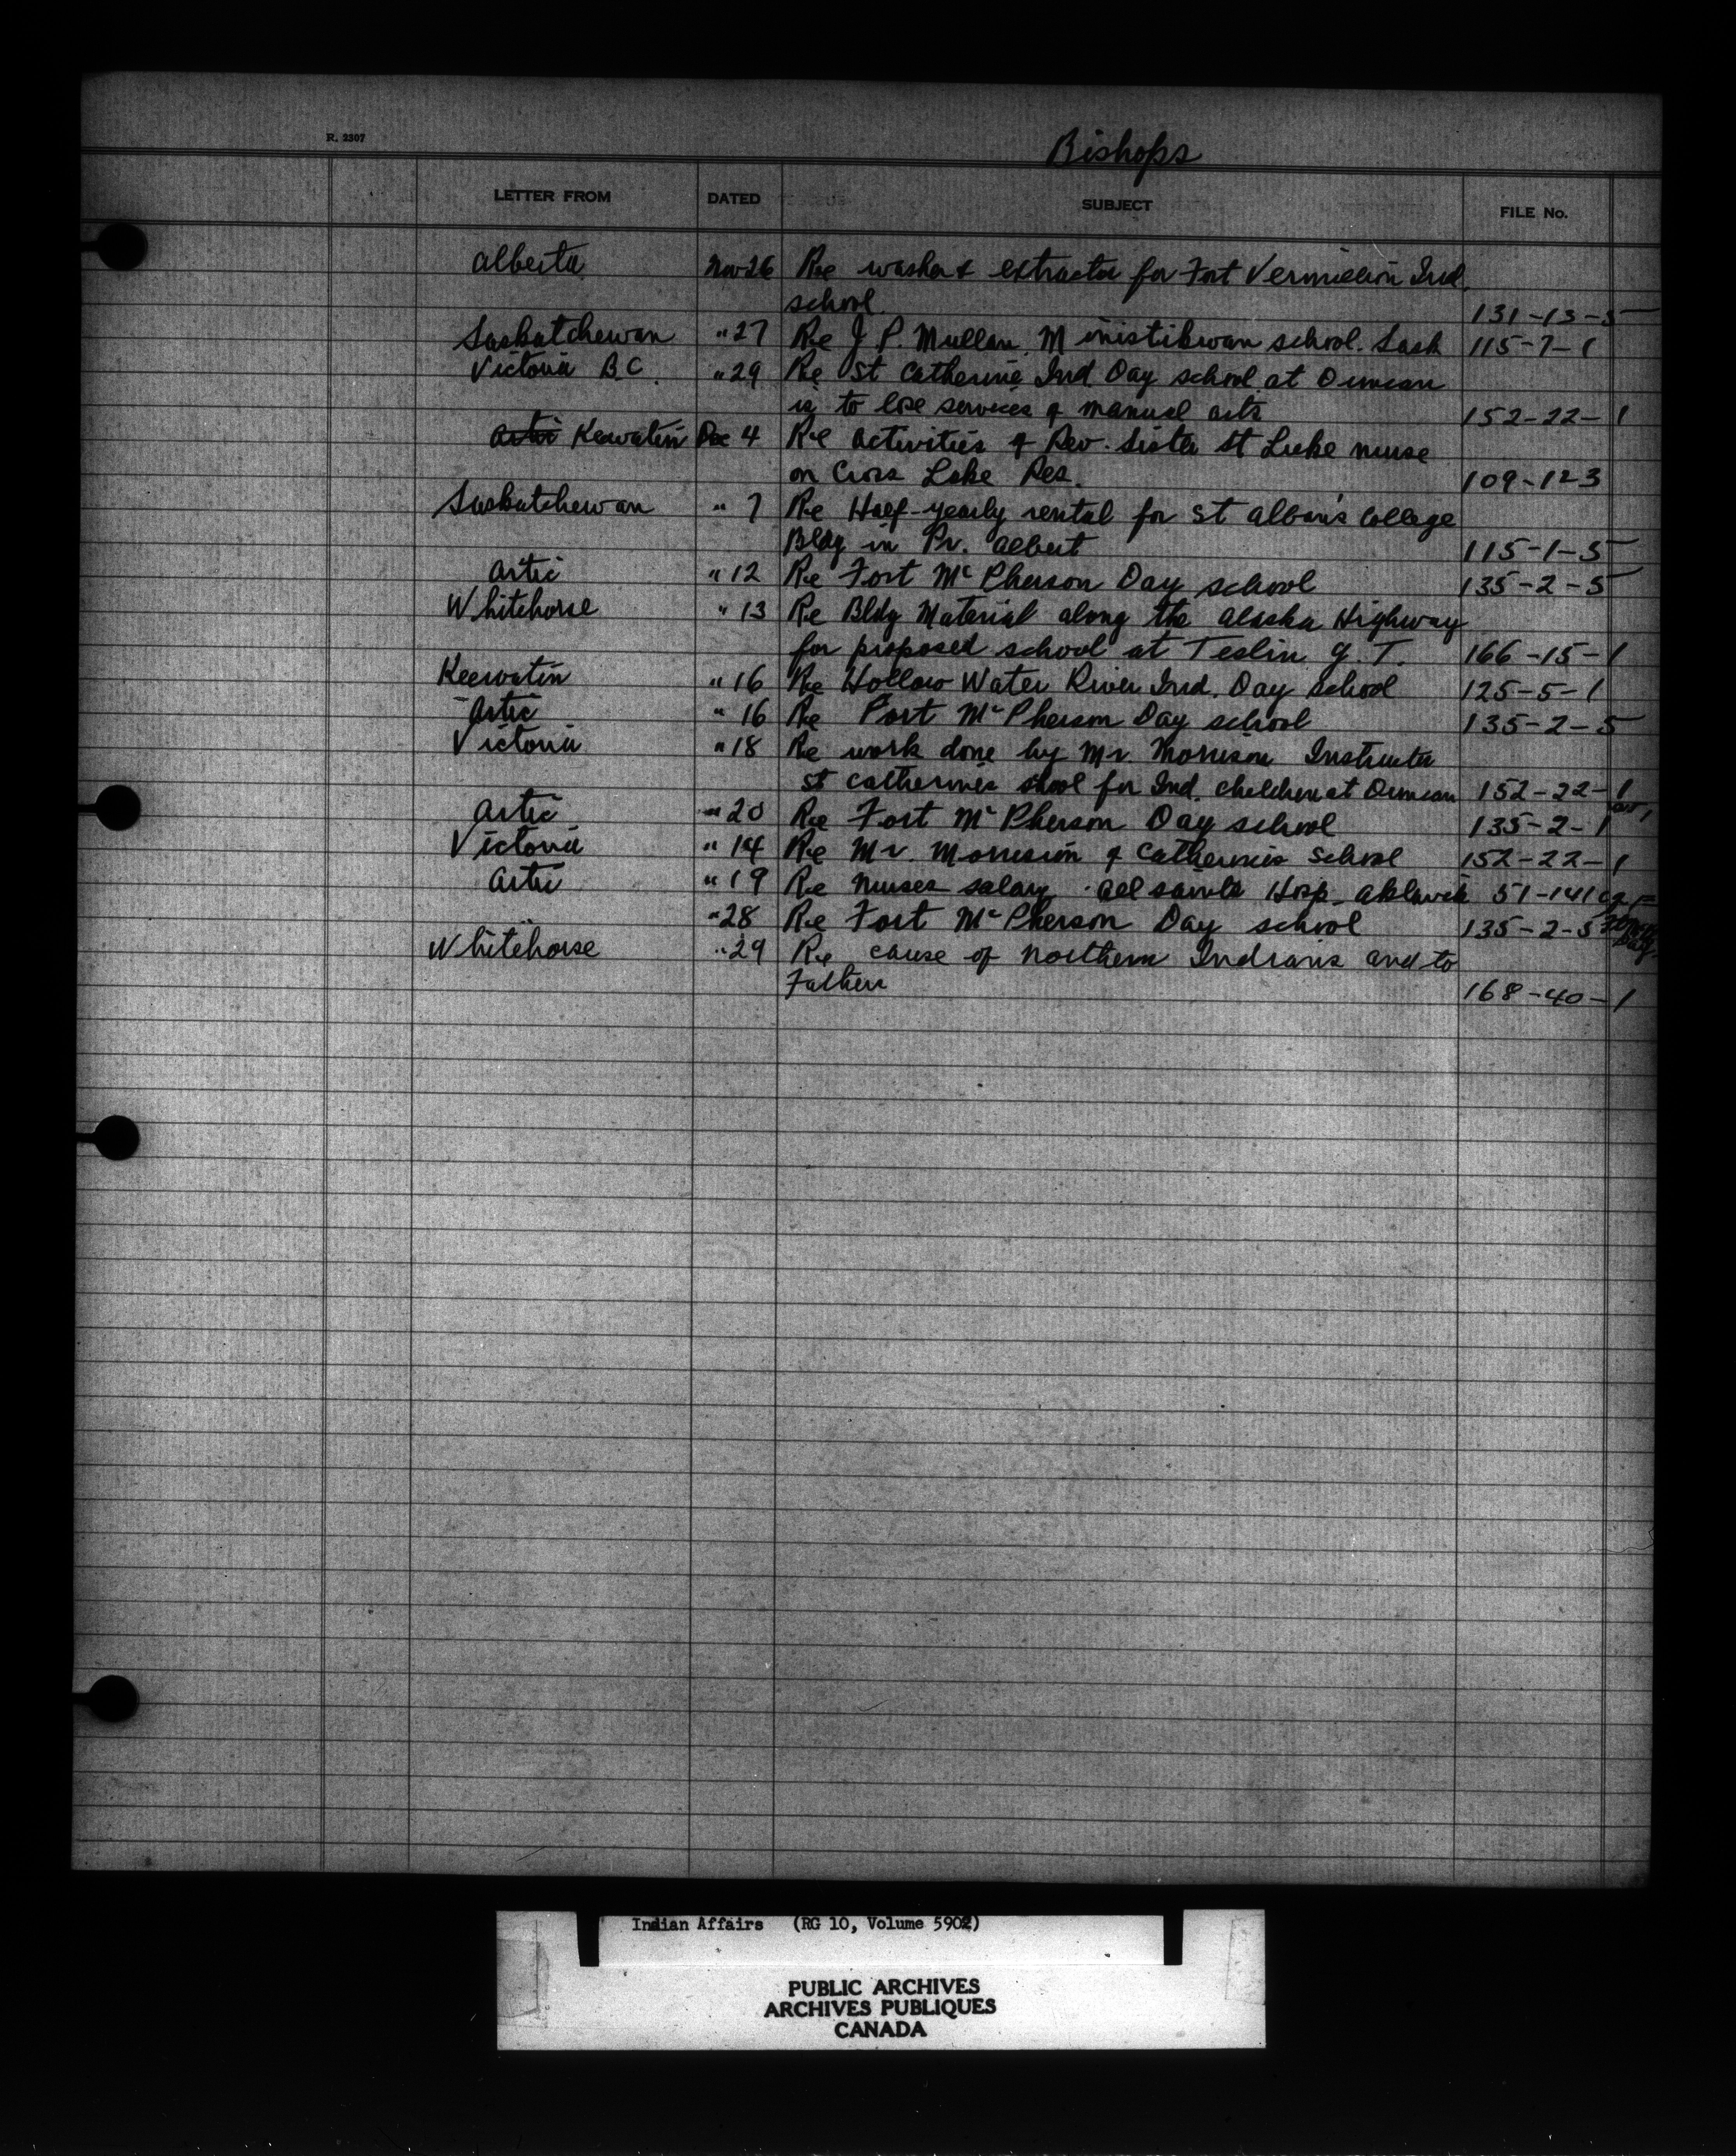 R. 2307
Bishops
LETTER FROM DATED SUBJECT FILE No.
Alberta Nov 26 Re washer & extractor for Fort Vermilion Ind.
school. 131-13-5
Saskatchewan " 27 Re J. P. Mullan. Ministikwan school. Sask 115-7-1
Victoria B.C. " 29 Re St Catherine Ind Day school at Duncan
is to lose services of manual arts 152-22-1
Artic Keewatin Dec 4 Re activities of Rev. Sister St Luke nurse
on Cross Lake Res. 109-12-3
Saskatchewan " 7 Re Half-yearly rental for St Alban's College
Bldg in Pr. Albert 115-1-5
Artic " 12 Re Fort McPherson Day school 135-2-5
Whitehorse " 13 Re Bldg Material along the Alaska Highway
for proposed school at Teslin Y.T. 166-15-1
Keewatin " 16 Re Hollow Water River Ind. Day School 125-5-1
Artic " 16 Re Fort McPherson Day school 135-2-5
Victoria " 18 Re work done by Mr. Morrison Instructor
St Catherines shool for Ind. children at Duncan 152-22-1
Artic " 20 Re Fort McPherson Day school 135-2-1
Victoria " 14 Re Mr. Morrison of Catherines School 152-22-1
Artic " 19 Re Nurses salary. All Saints Hosp. Aklavik 51-141
" 28 Re Fort McPherson Day school 135-2-5
Whitehorse " 29 Re cause of Northern Indians and to
Fathers 168-40-1
Indian Affairs (RG 10, Volume 5902)
PUBLIC ARCHIVES
ARCHIVES PUBLIQUES
CANADA